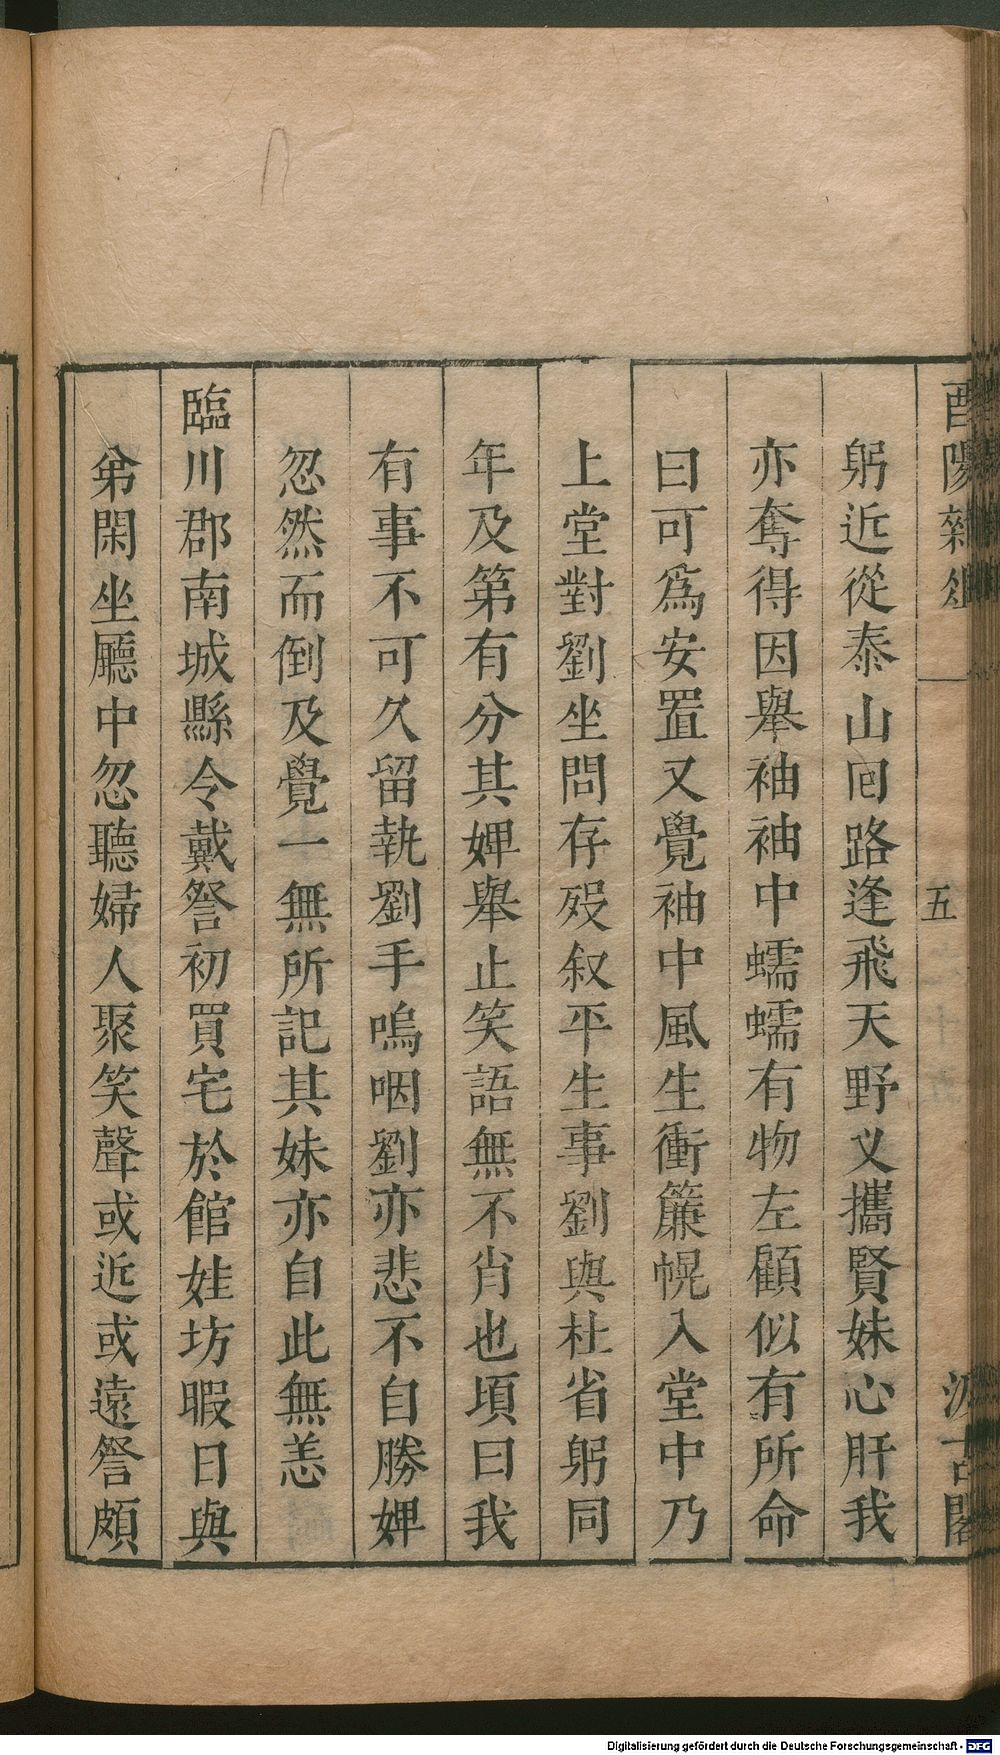 酉陽雜俎
五
汲古閣
躬近從泰山囘路逢飛天野义攜賢妹心肝我
亦奪得因舉袖袖中蠕蠕有物左顧似有所命
曰可爲安置又覺袖中風生衝簾幌入堂中乃
上堂對劉坐問存歿叙平生事劉與杜省躬同
年及第有分其婢舉止笑語無不肖也頃曰我
有事不可久留執劉手嗚咽劉亦悲不自勝婢
忽然而倒及覺一無所記其妹亦自此無恙
臨川郡南城縣令戴詧初買宅於館娃坊暇日與
弟閑坐廳中忽聽婦人聚笑聲或近或遠詧頗
Digitalisierung gefördert durch die Deutsche Forschungsgemeinschaft - DFG